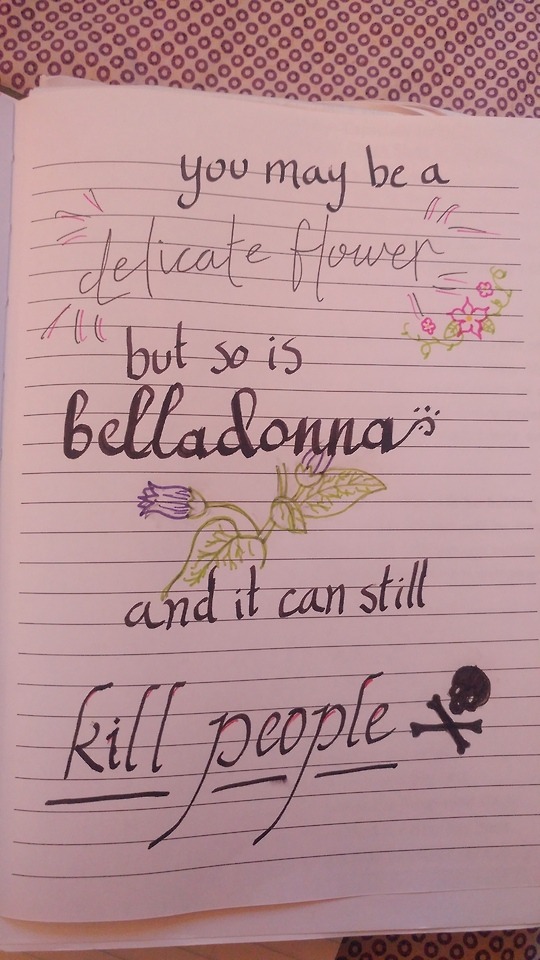 you may be a
delicate flower
but so is
belladonna
and it can still
kill people